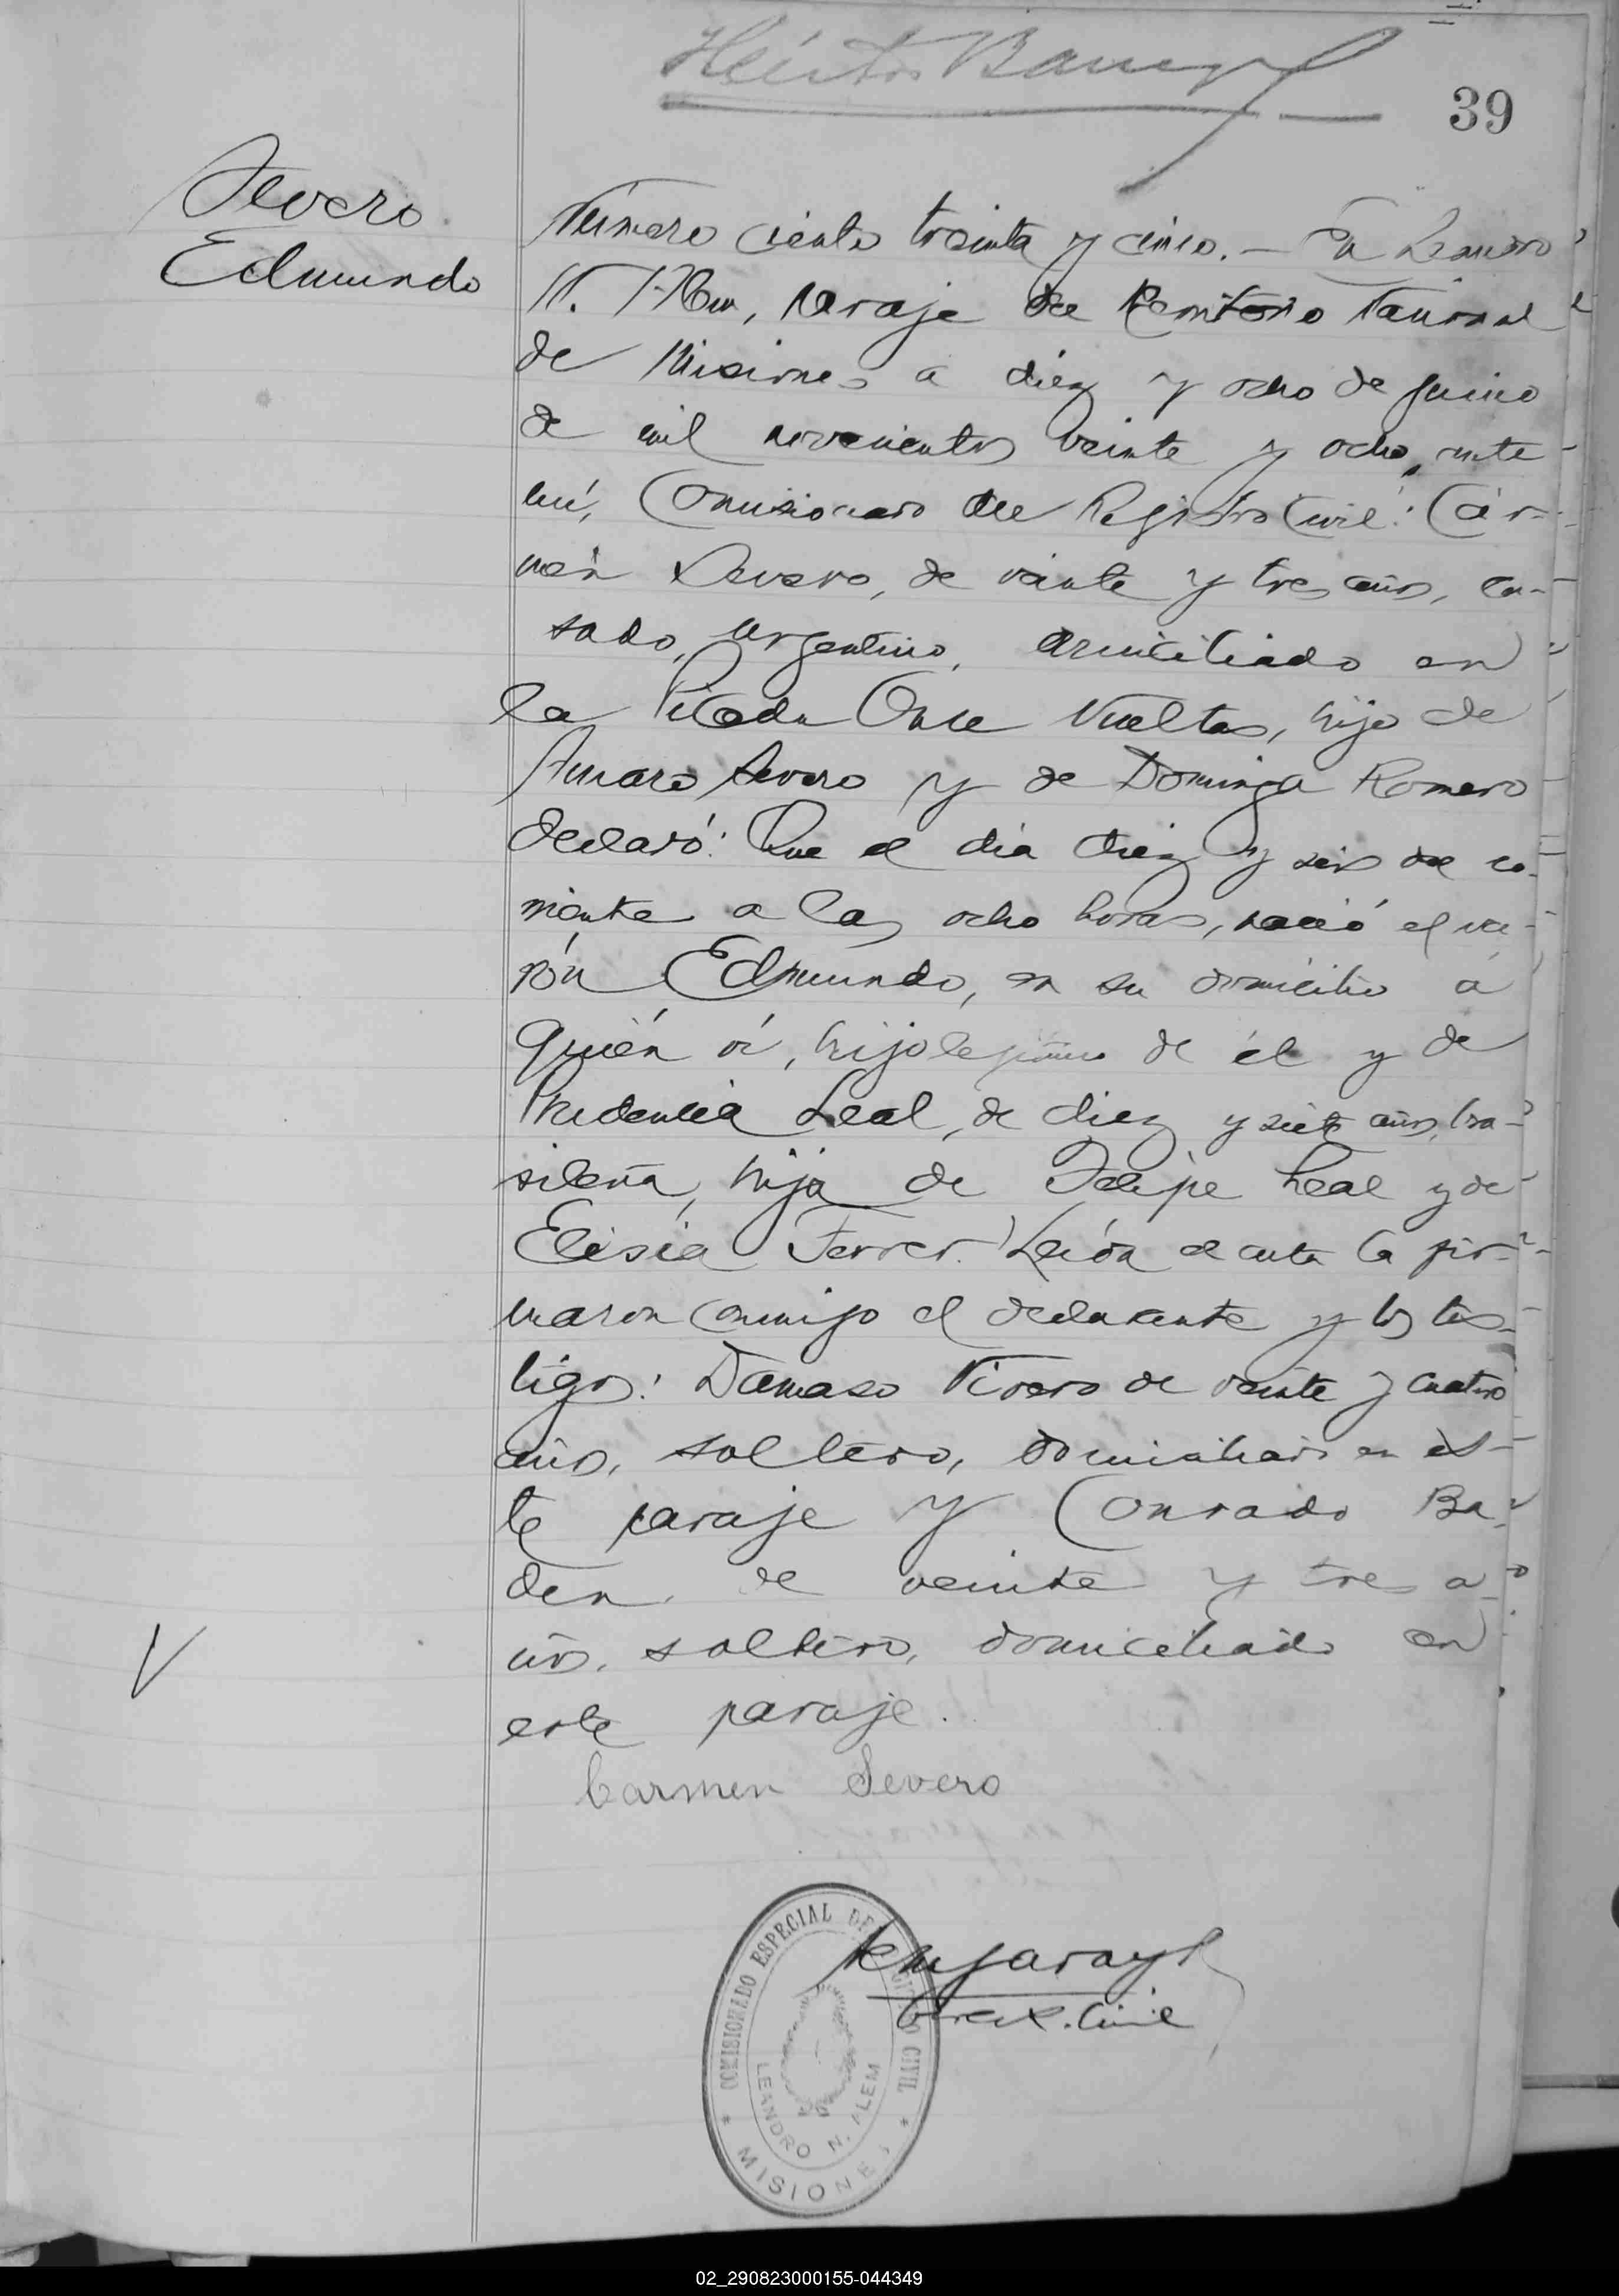 39
Severo
Edmundo
Número ciento treinta y cinco. – En Leandro
N. Alem, paraje del Territorio Nacional
de Misiones a diez y ocho de Junio
de mil novecientos veinte y ocho, ante
mí, Comisionado del Registro Civil: Cár-
men Severo, de veinte y tres años, ca-
sado, argentino, domiciliado en
la Picada Once Vueltas, hijo de
Amaro Severo y de Dominga Romero
declaró: Que el día diez y seis del co-
rriente a las ocho horas, nació el va-
rón Edmundo, en su domicilio á
quién ví, hijo legítimo de él y de
Prudencia Leal, de diez y siete años, bra-
sileña, hija de Felipe Leal y de
Elisia Ferrer. Leída el acta la fir-
maron conmigo el declarante y los tes-
tigos: Damaso Vivero de veinte y cuatro
años, soltero, domiciliado en es-
te paraje y Conrado Ba-
den de veinte y tres a-
ños, soltero, domiciliado en
este paraje.
Carmen Severo
COMISIONADO ESPECIAL DEL REGISTRO CIVIL
LEANDRO N. ALEM
* MISIONES *
02_290823000155-044349